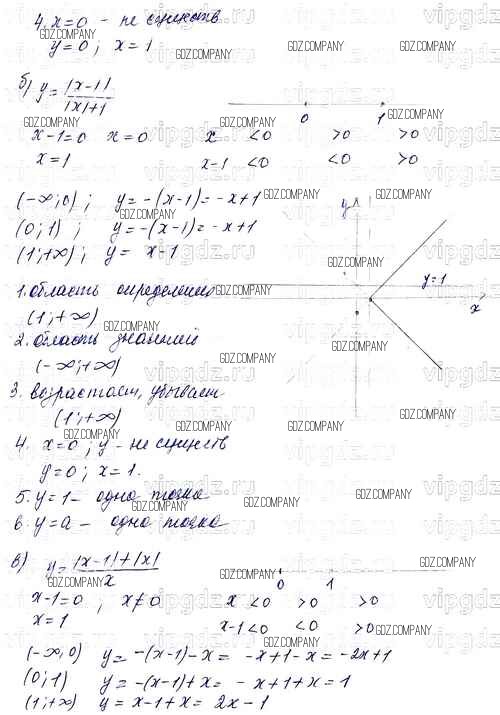 4. x=0 - не существ.
y=0; x=1
б) y = |x-1| / |x|+1
0 1
x-1=0 x=0 x <0 >0 >0
x=1 x-1 <0 <0 >0
(-∞;0); y=-(x-1)=-x+1
(0;1); y=-(x-1)=-x+1
(1;+∞); y= x-1
y
y=1
x
1. область определения
(1;+∞)
2. область значений
(-∞;+∞)
3. возрастает, убывает
(1;+∞)
4. x=0; y - не существ
y=0; x=1.
5. y=1 - одна точка
6. y=a - одна точка
в) y = |x-1|+|x| / x
0 1
x-1=0; x≠0 x <0 >0 >0
x=1 x-1 <0 <0 >0
(-∞,0) y= -(x-1)-x= -x+1-x= -2x+1
(0;1) y= -(x-1)+x= -x+1+x=1
(1;+∞) y= x-1+x= 2x-1
GDZ.COMPANY
vipgdz.ru